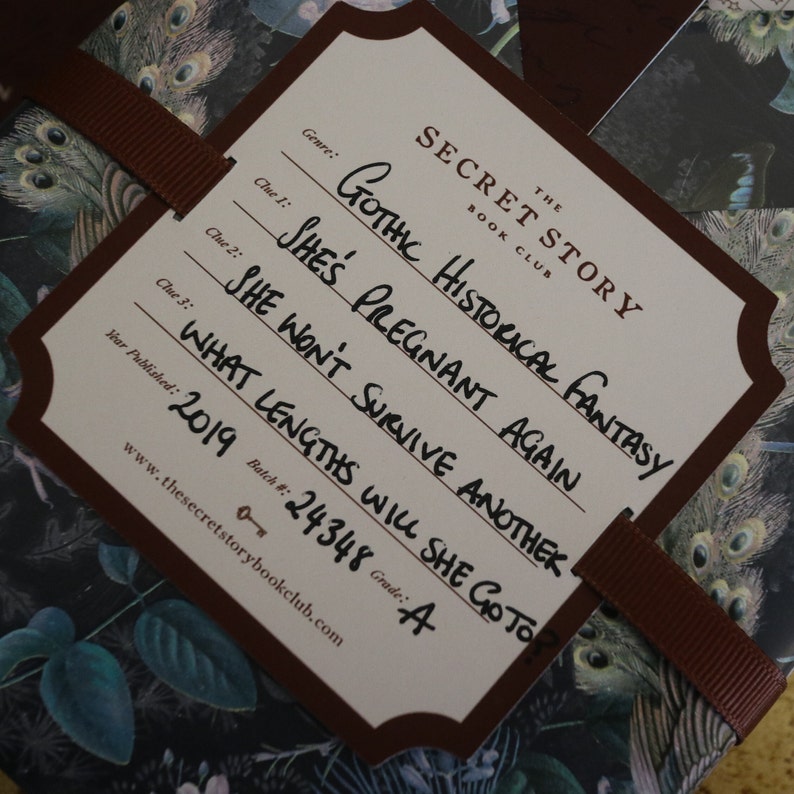 THE
SECRET STORY
BOOK CLUB
Genre: GOTHIC HISTORICAL FANTASY
Clue 1: SHE'S PREGNANT AGAIN
Clue 2: SHE WON'T SURVIVE ANOTHER
Clue 3: WHAT LENGTHS WILL SHE GO TO?
Year Published: 2019 Batch#: 24348 Grade: A
www.thesecretstorybookclub.com